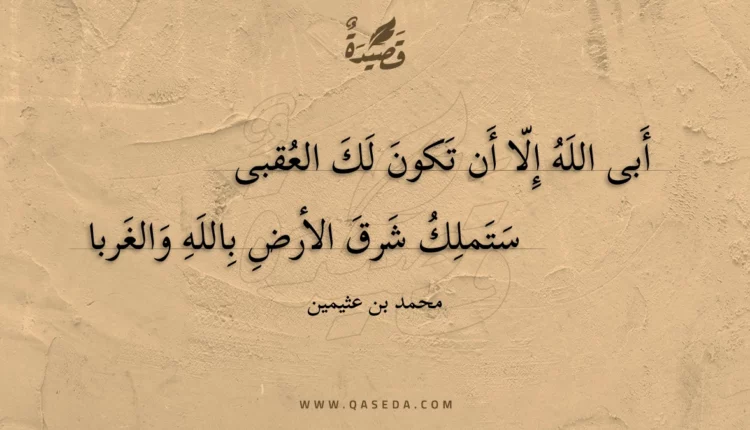 قَصِيدَةٌ
أَبى اللَهُ إِلّا أَن تَكونَ لَكَ العُقبى
سَتَملِكُ شَرقَ الأَرضِ بِاللَهِ وَالغَربا
محمد بن عثيمين
WWW.QASEDA.COM